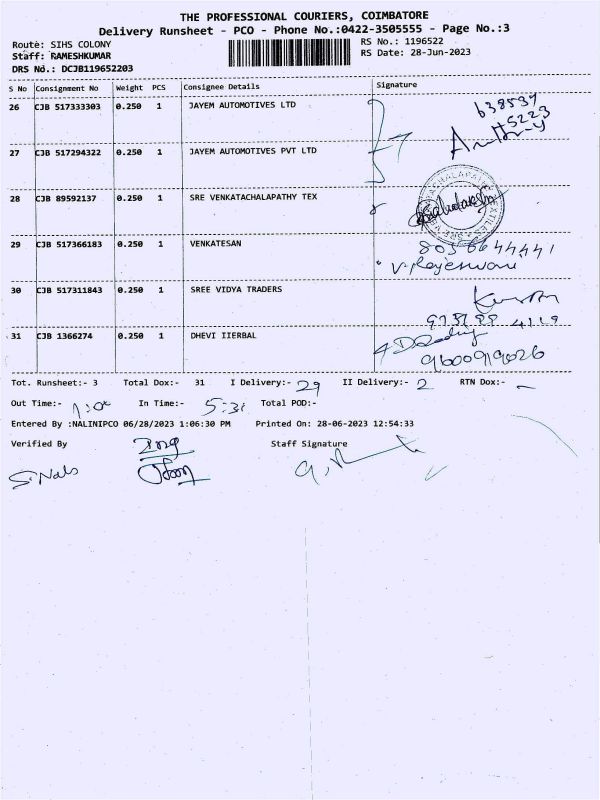 THE PROFESSIONAL COURIERS, COIMBATORE
Delivery Runsheet - PCO - Phone No.:0422-3505555 - Page No.:3
Route: SIHS COLONY
RS No.: 1196522
Staff: RAMESHKUMAR
RS Date: 28-Jun-2023
DRS No.: DCJB119652203
S No Consignment No Weight PCS Consignee Details Signature
26 CJB 517333303 0.250 1 JAYEM AUTOMOTIVES LTD
27 CJB 517294322 0.250 1 JAYEM AUTOMOTIVES PVT LTD
28 CJB 89592137 0.250 1 SRE VENKATACHALAPATHY TEX
29 CJB 517366183 0.250 1 VENKATESAN
V. Rajeswari
30 CJB 517311843 0.250 1 SREE VIDYA TRADERS
31 CJB 1366274 0.250 1 DHEVI IIERBAL
Tot. Runsheet:- 3 Total Dox:- 31 I Delivery:- 29 II Delivery:- 2 RTN Dox:- -
Out Time:- In Time:- 5:31 Total POD:-
Entered By :NALINIPCO 06/28/2023 1:06:30 PM Printed On: 28-06-2023 12:54:33
Verified By Staff Signature